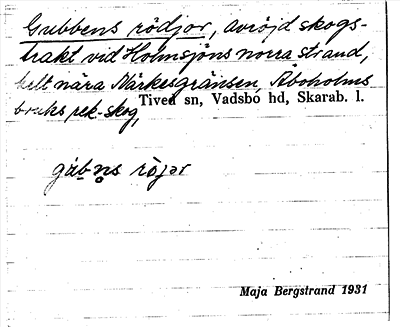 Gubbens rödjor, avröjd skogs-
trakt vid Holmsjöns norra strand,
helt nära Närkesgränsen, Åboholms
bruks rek-skog,
Tived sn, Vadsbo hd, Skarab. l.
gúbn̥s rö̀jər
Maja Bergstrand 1931